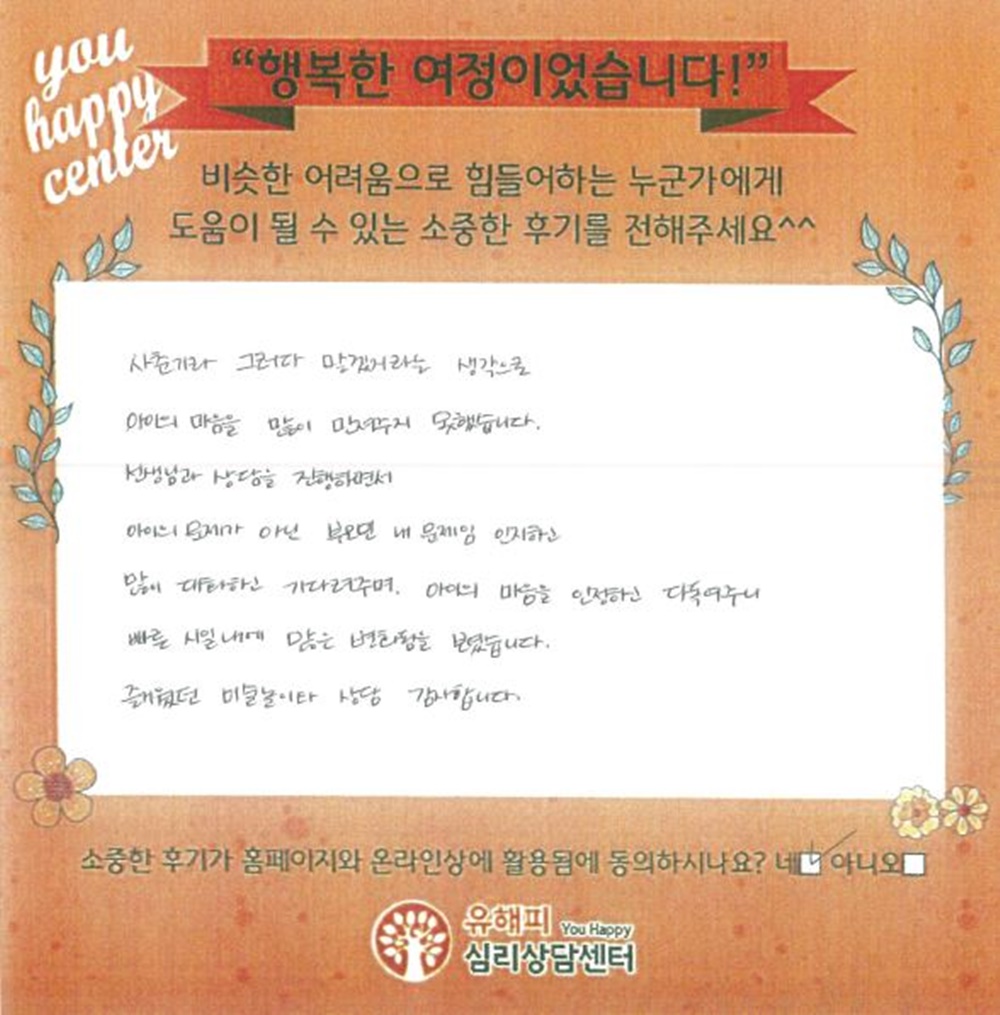 you
happy
center
“행복한 여정이었습니다!”
비슷한 어려움으로 힘들어하는 누군가에게
도움이 될 수 있는 소중한 후기를 전해주세요^^
사춘기라 그러다 말겠거라는 생각으로
아이의 마음을 많이 만져주지 못했습니다.
선생님과 상담을 진행하면서
아이의 문제가 아닌 부모면 내 문제임 인지하고
많이 대화하고 기다려주며. 아이의 마음을 인정하고 다독여주니
빠른 시일내에 많은 변화함을 보였습니다.
즐거웠던 미술놀이와 상담 감사합니다.
소중한 후기가 홈페이지와 온라인상에 활용됨에 동의하시나요? 네 아니오
유해피 You Happy
심리상담센터